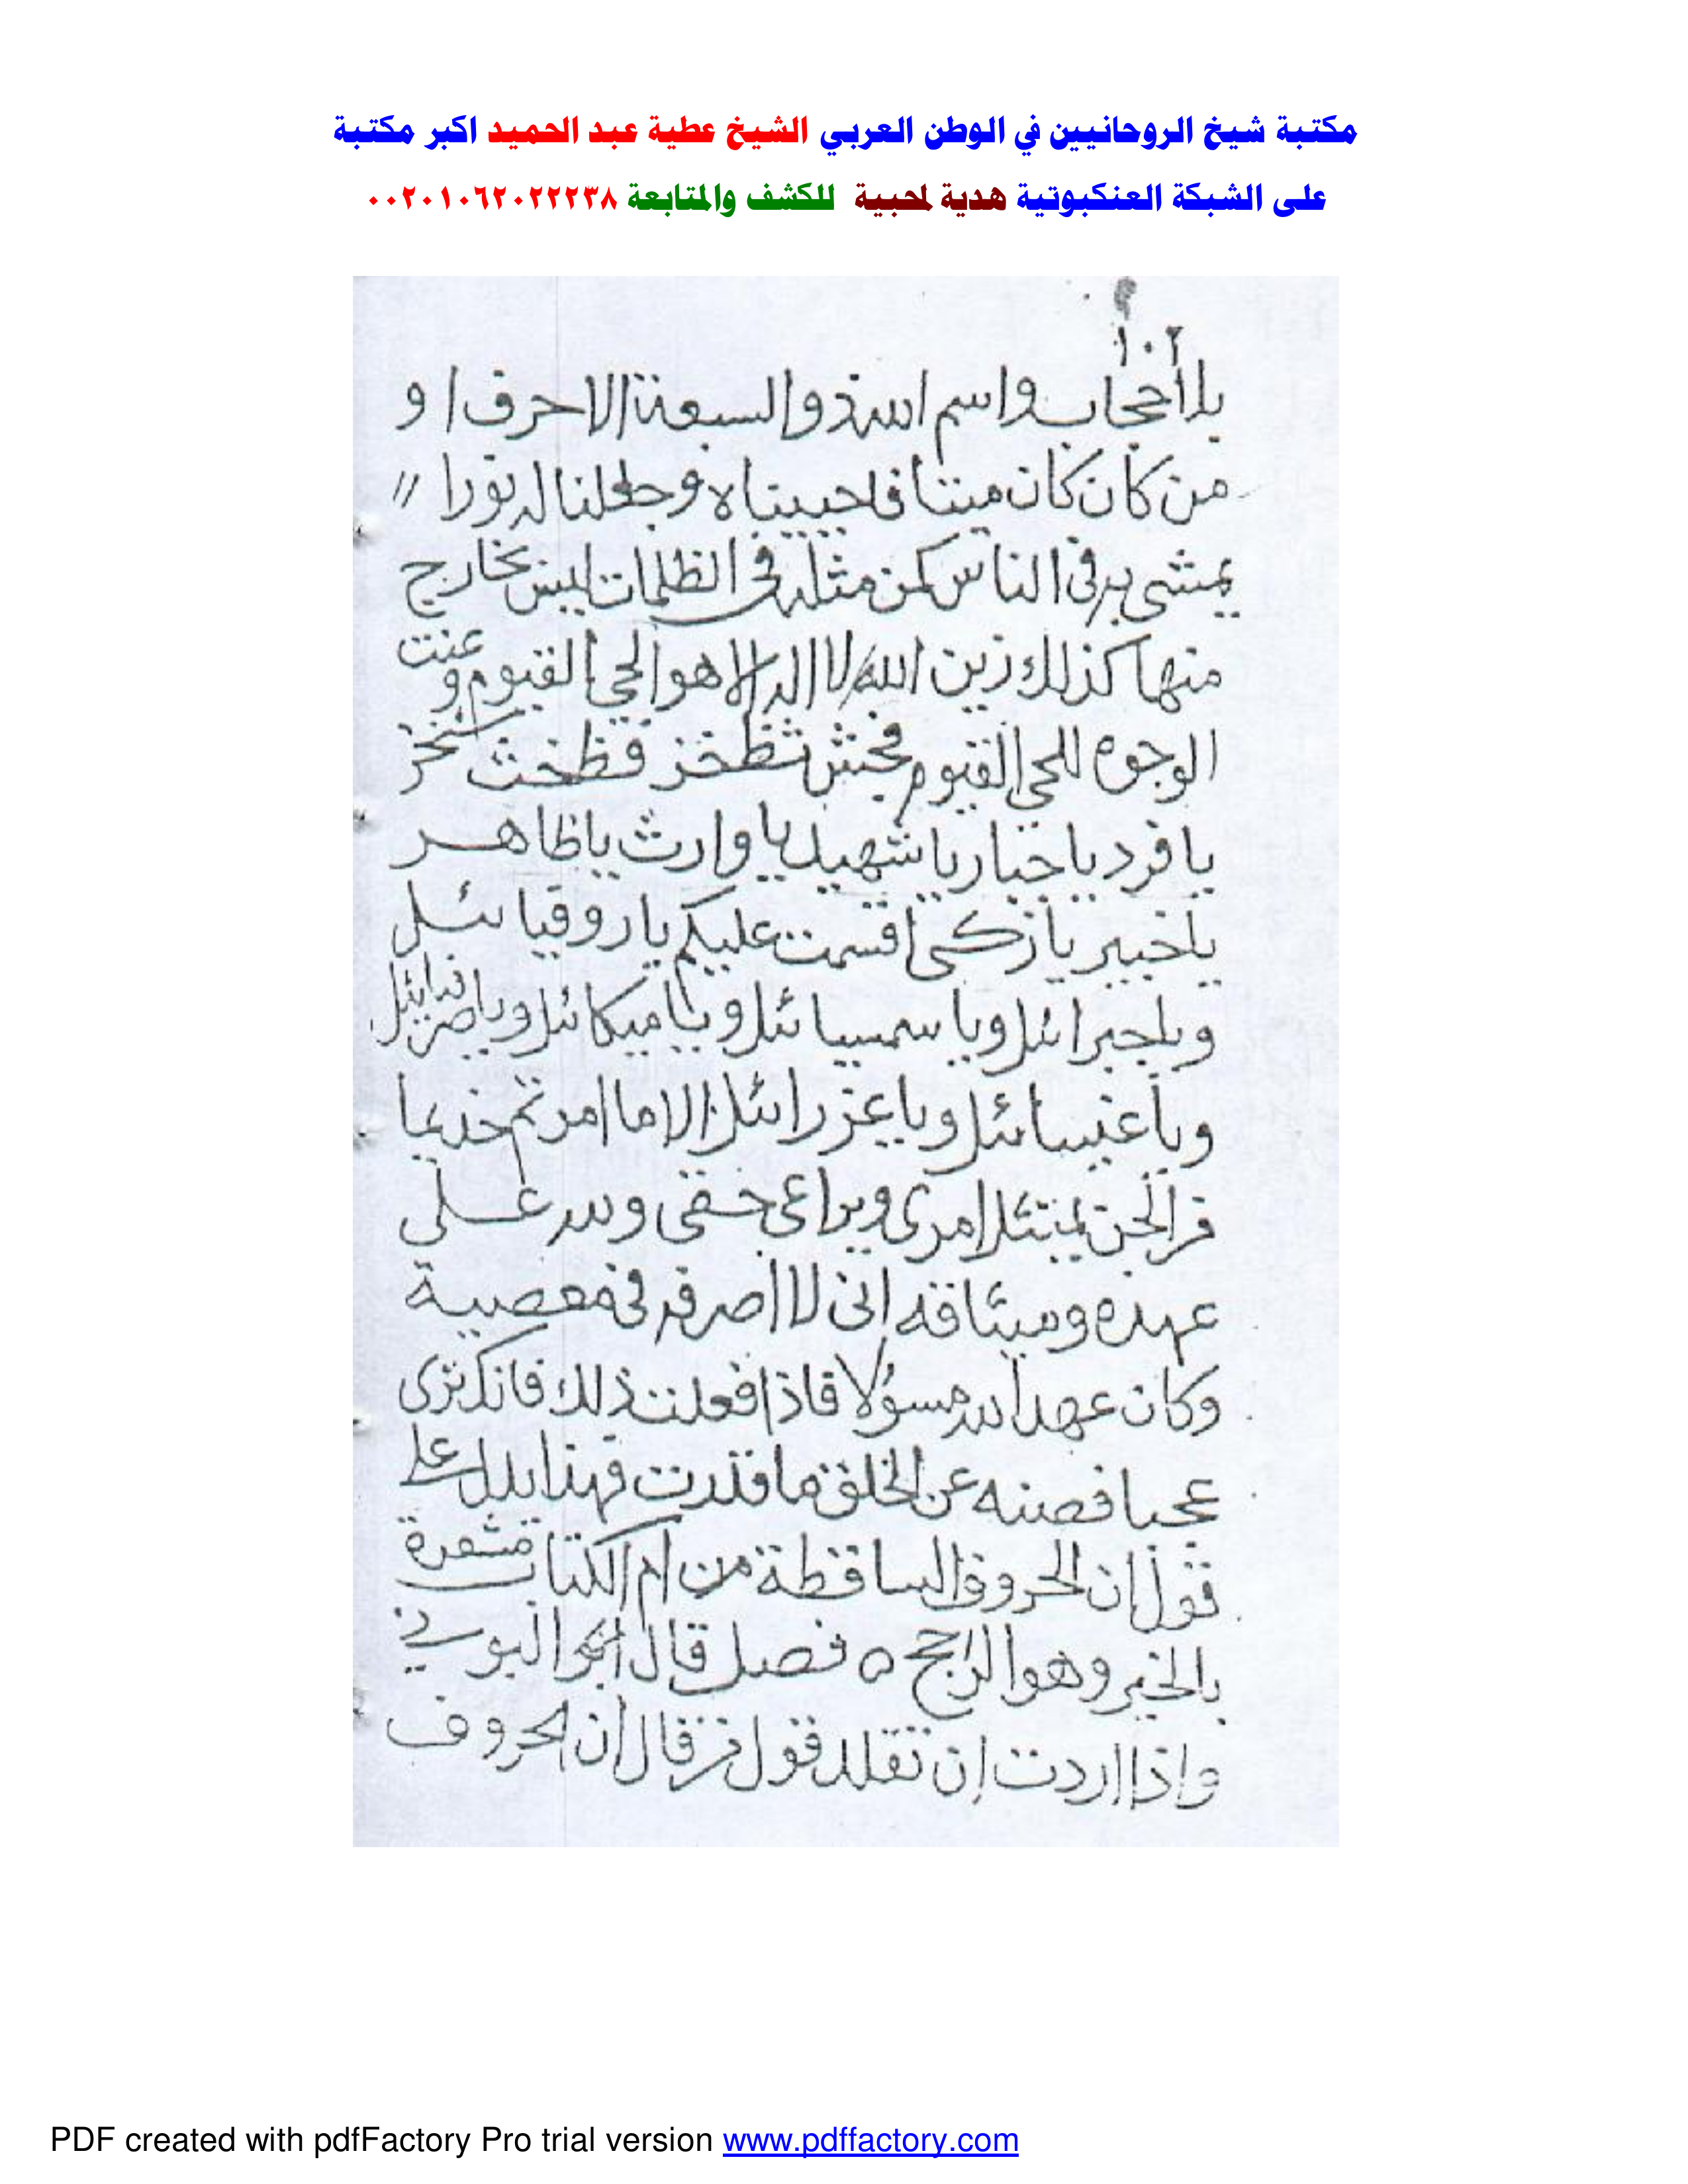 مكتبة شيخ الروحانيين في الوطن العربي الشيخ عطية عبد الحميد اكبر مكتبة
على الشبكة العنكبوتية هدية لمحبية للكشف والمتابعة ٠٠٢٠١٠٦٢٠٢٢٢٣٨
١٠٢
بلا حجاب واسم الله ذو السبعة الاحرف او
من كان كان ميتا فاحييناه وجعلنا له نورا
يمشى به فى الناس كمن مثله فى الظلمات ليس بخارج
منها كذلك زين الله لا اله الا هو الحي القيوم وعنت
الوجوه للحي القيوم فجش ثظخز فظخث
يا فرد يا جبار يا شهيد يا وارث يا ظاهر
يا خبير يا زكى اقسمت عليكم يا روقيائل
ويا جبرائل ويا سمسيائل ويا ميكائل ويا صرفيائل
ويا عنيائل ويا عزرائل الا ما امرتم خديما
من الجن يمتثل امرى ويراعى حقى ولله على
عهده وميثاقه انى لا اصرفه فى معصية
وكان عهد الله مسؤلا فاذا فعلت ذلك فانك ترى
عجبا فصنه عن الخلق ما قدرت فهذا يدل على
قول ان الحروف الساقطة من ام الكتاب مشعرة
بالخير وهو الراجح ٥ فصل قال البونى
واذا اردت ان تقلد قول من قال ان الحروف
PDF created with pdfFactory Pro trial version www.pdffactory.com